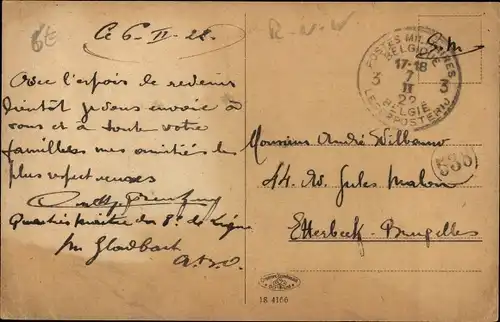 6€
Ce 6-II-22
R-N-W
S.M.
Avec l'espoir de revenir
bientôt je vous envoie à
vous et à toute votre
familles mes amitiés les
plus respectueuses
Quartier maître du 8e de Ligne
M. Gladbach
A.B.O.
POSTES MILITAIRES
BELGIQUE
17-18
3 7 3
II
22
BELGIE
LEGERPOSTERIJ
Monsieur André
44. Av. Jules Malou
Etterbeek-Bruxelles
18 4166